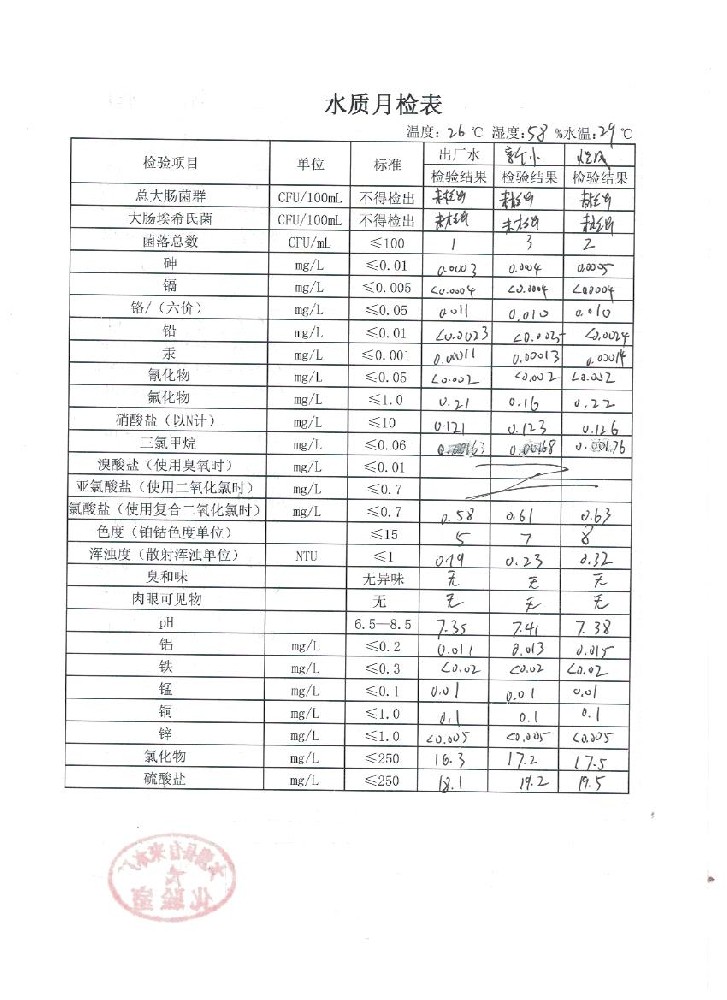 水质月检表
温度: 26 ℃ 湿度: 58 %水温: 29 ℃
检验项目 单位 标准 出厂水
检验结果 检验结果 检验结果
总大肠菌群 CFU/100mL 不得检出 未检出 未检出 未检出
大肠埃希氏菌 CFU/100mL 不得检出 未检出 未检出 未检出
菌落总数 CFU/mL ≤100 1 3 2
砷 mg/L ≤0.01 0.0003 0.0004 0.0005
镉 mg/L ≤0.005 <0.0004 <0.0004 <0.0004
铬/（六价） mg/L ≤0.05 0.011 0.010 0.010
铅 mg/L ≤0.01 <0.0023 <0.0025 <0.0024
汞 mg/L ≤0.001 0.00011 0.00013 0.00014
氰化物 mg/L ≤0.05 <0.002 <0.002 <0.002
氟化物 mg/L ≤1.0 0.21 0.16 0.22
硝酸盐（以N计） mg/L ≤10 0.121 0.123 0.126
三氯甲烷 mg/L ≤0.06
溴酸盐（使用臭氧时） mg/L ≤0.01
亚氯酸盐（使用二氧化氯时） mg/L ≤0.7
氯酸盐（使用复合二氧化氯时） mg/L ≤0.7 0.58 0.61 0.63
色度（铂钴色度单位） ≤15 5 7 8
浑浊度（散射浑浊单位） NTU ≤1 0.19 0.23 0.32
臭和味 无异味 无 无 无
肉眼可见物 无 无 无 无
pH 6.5—8.5 7.35 7.41 7.38
铝 mg/L ≤0.2 0.011 0.013 0.015
铁 mg/L ≤0.3 <0.02 <0.02 <0.02
锰 mg/L ≤0.1 0.01 0.01 0.01
铜 mg/L ≤1.0 0.1 0.1 0.1
锌 mg/L ≤1.0 <0.005 <0.005 <0.005
氯化物 mg/L ≤250 16.3 17.2 17.5
硫酸盐 mg/L ≤250 18.1 19.2 19.5
化验室